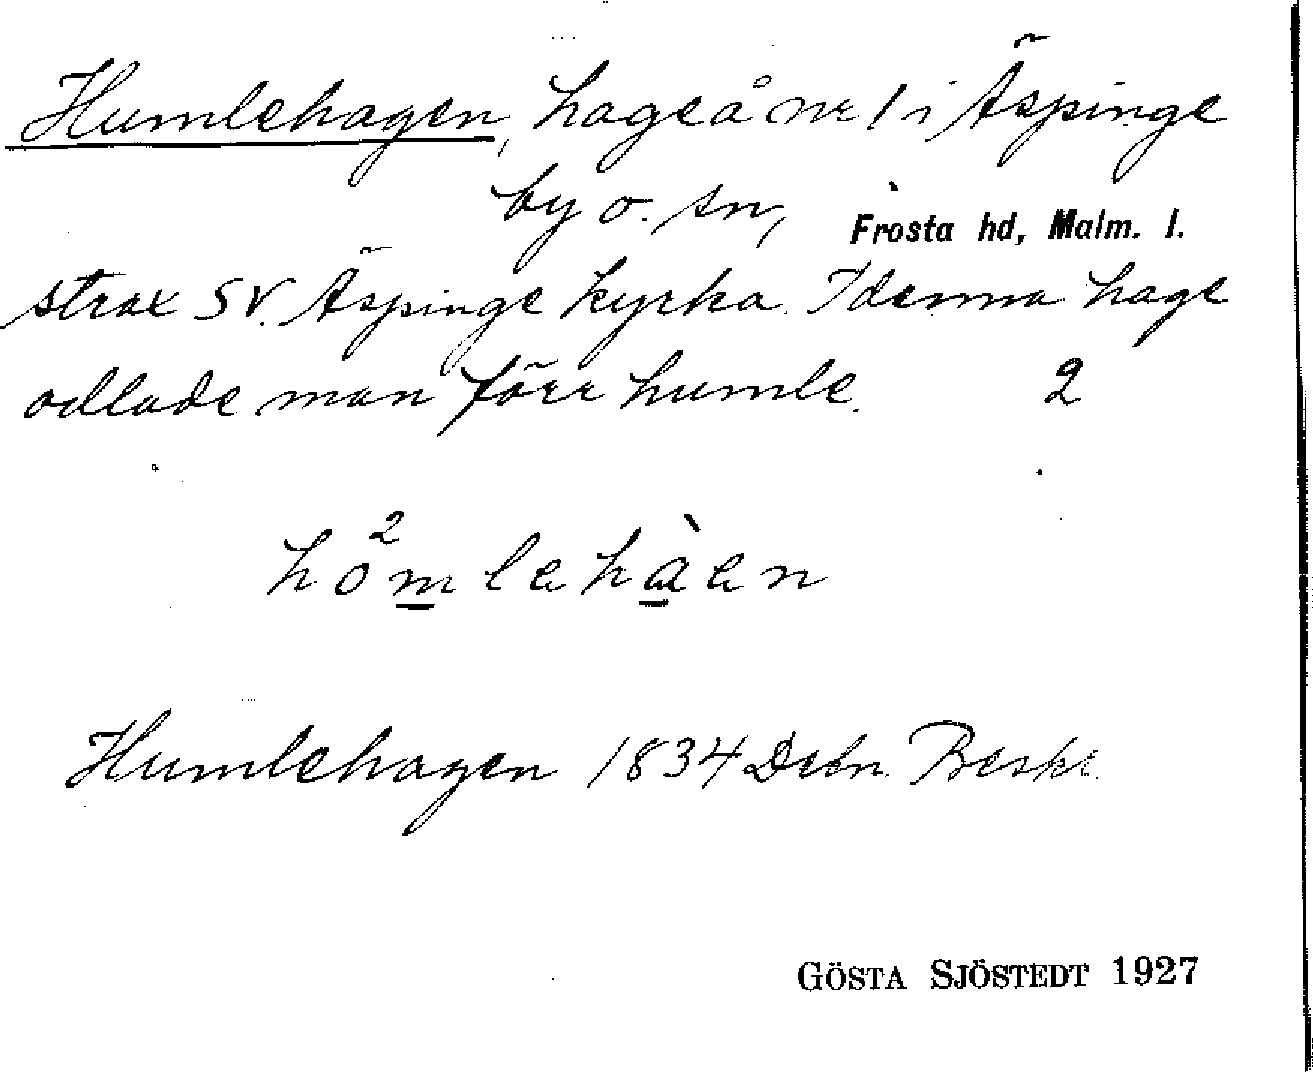 Humlehagen, hage å nr 1 i Äspinge
by o. sn, Frosta hd, Malm. l.
strax SV. Äspinge kyrka. I denna hage
odlade man förr humle. 2
ho2mlehàen
Humlehagen 1834 Beskr.
GÖSTA SJÖSTEDT 1927